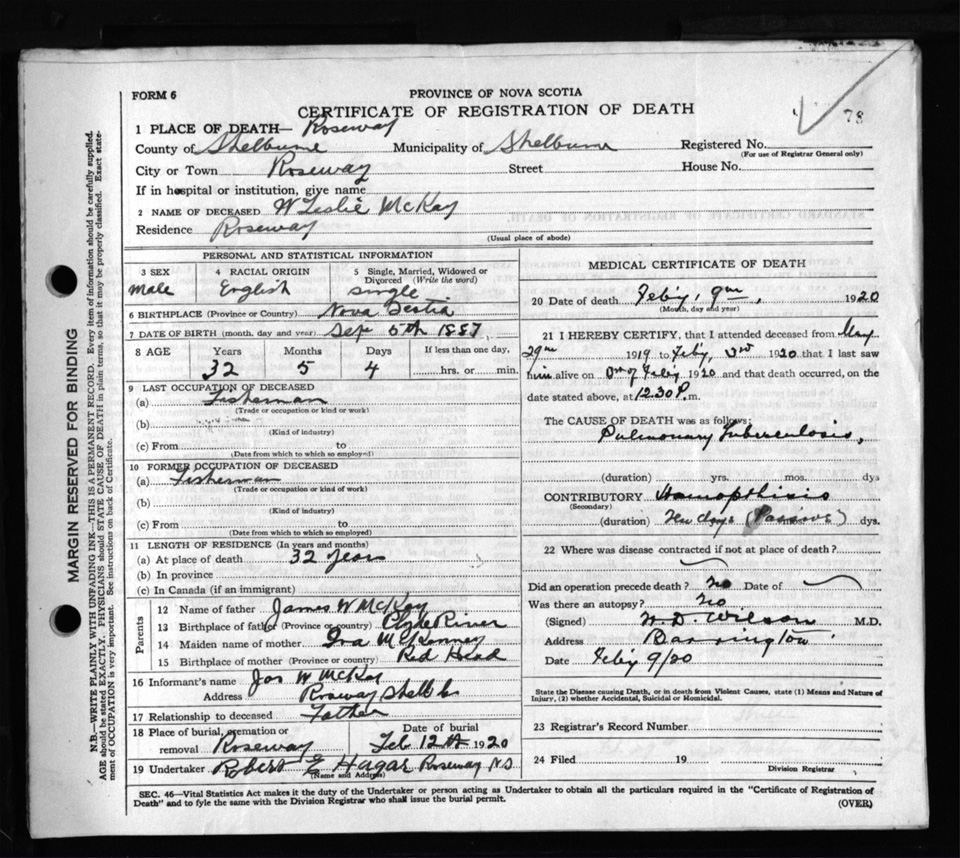 78
FORM 6
PROVINCE OF NOVA SCOTIA
CERTIFICATE OF REGISTRATION OF DEATH
1 PLACE OF DEATH— Roseway
County of Shelburne Municipality of Shelburne Registered No.
(For use of Registrar General only)
City or Town Roseway Street House No.
If in hospital or institution, give name
2 NAME OF DECEASED W Leslie McKay
Residence Roseway
(Usual place of abode)
PERSONAL AND STATISTICAL INFORMATION
3 SEX 4 RACIAL ORIGIN 5 Single, Married, Widowed or
Divorced (Write the word)
male English single
6 BIRTHPLACE (Province or Country) Nova Scotia
7 DATE OF BIRTH (month, day and year) Sep 5th 1887
8 AGE Years Months Days If less than one day,
32 5 4 hrs. or min.
9 LAST OCCUPATION OF DECEASED
(a) Fisherman
(Trade or occupation or kind or work)
(b)
(Kind of industry)
(c) From to
(Date from which to which so employed)
10 FORMER OCCUPATION OF DECEASED
(a) Fisherman
(Trade or occupation or kind of work)
(b)
(Kind of industry)
(c) From to
(Date from which to which so employed)
11 LENGTH OF RESIDENCE (In years and months)
(a) At place of death 32 years
(b) In province
(c) In Canada (if an immigrant)
Parents
12 Name of father James W McKay
13 Birthplace of father (Province or country) Clyde River
14 Maiden name of mother Ina McKenney
15 Birthplace of mother (Province or country) Red Head
16 Informant's name Jas W McKay
Address Roseway Shelb Co
17 Relationship to deceased Father
18 Place of burial, cremation or Date of burial
removal Roseway Feb 12th 1920
19 Undertaker Robert E Hagar Roseway N.S
(Name and Address)
MEDICAL CERTIFICATE OF DEATH
20 Date of death Feb'y, 9th, 1920
(Month, day and year)
21 I HEREBY CERTIFY, that I attended deceased from May
29th 1919 to Feb'y, 3rd 1920 that I last saw
him alive on of Feb'y 1920 and that death occurred, on the
date stated above, at 12.30 P.m.
The CAUSE OF DEATH was as follows:
Pulmonary Tuberculosis,
(duration) yrs. mos. dys
CONTRIBUTORY Haemopthisis
(Secondary)
(duration) days dys.
22 Where was disease contracted if not at place of death?
Did an operation precede death? No Date of
Was there an autopsy? No
(Signed) W. D. Wilson M.D.
Address Barrington
Date Feb'y 9/20
State the Disease causing Death, or in death from Violent Causes, state (1) Means and Nature of
Injury, (2) whether Accidental, Suicidal or Homicidal.
23 Registrar's Record Number
24 Filed 19
Division Registrar
SEC. 46—Vital Statistics Act makes it the duty of the Undertaker or person acting as Undertaker to obtain all the particulars required in the "Certificate of Registration of
Death" and to fyle the same with the Division Registrar who shall issue the burial permit.
(OVER)
MARGIN RESERVED FOR BINDING
N.B.—WRITE PLAINLY WITH UNFADING INK—THIS IS A PERMANENT RECORD. Every item of information should be carefully supplied.
AGE should be stated EXACTLY. PHYSICIANS should STATE CAUSE OF DEATH in plain terms, so that it may be properly classified. Exact state-
ment of OCCUPATION is very important. See instructions on back of Certificate.